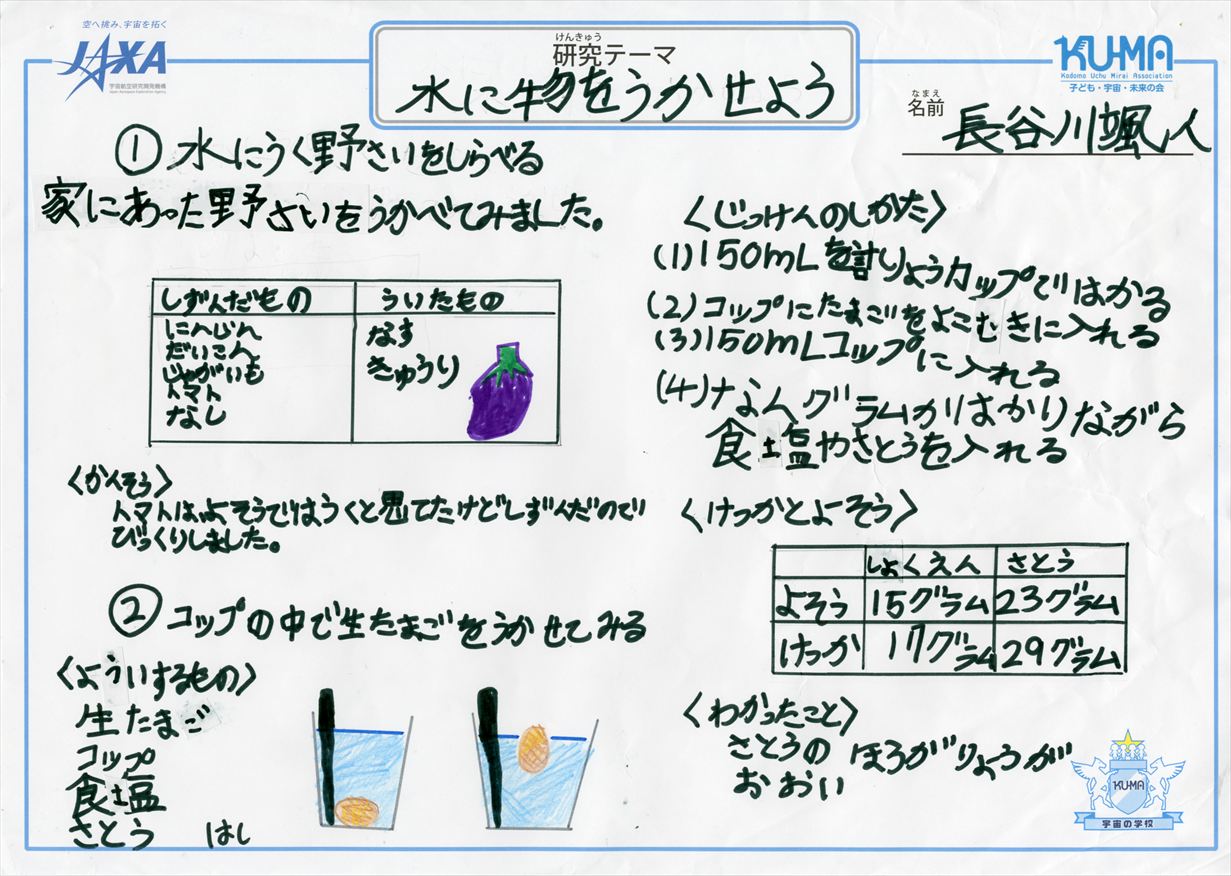 空へ挑み、宇宙を拓く
JAXA
宇宙航空研究開発機構
Japan Aerospace Exploration Agency
けんきゅう
研究テーマ
水に物をうかせよう
KU-MA
Kodomo Uchu Mirai Association
子ども・宇宙・未来の会
なまえ
名前 長谷川颯人
① 水にうく野さいをしらべる
家にあった野さいをうかべてみました。
しずんだもの ういたもの
にんじん なす
だいこん きゅうり
じゃがいも
トマト
なし
〈かんそう〉
トマトは、よそうではうくと思てたけどしずんだので
びっくりしました。
② コップの中で生たまごをうかせてみる
〈よういするもの〉
生たまご
コップ
食塩
さとう はし
〈じっけんのしかた〉
(1)150mLを計りょうカップではかる
(2)コップにたまごをよこむきに入れる
(3)150mLコップに入れる
(4)なんグラムかはかりながら
食塩やさとうを入れる
〈けっかとよーそう〉
しょくえん さとう
よそう 15グラム 23グラム
けっか 17グラム 29グラム
〈わかったこと〉
さとうのほうがりょうが
おおい
KU-MA
宇宙の学校